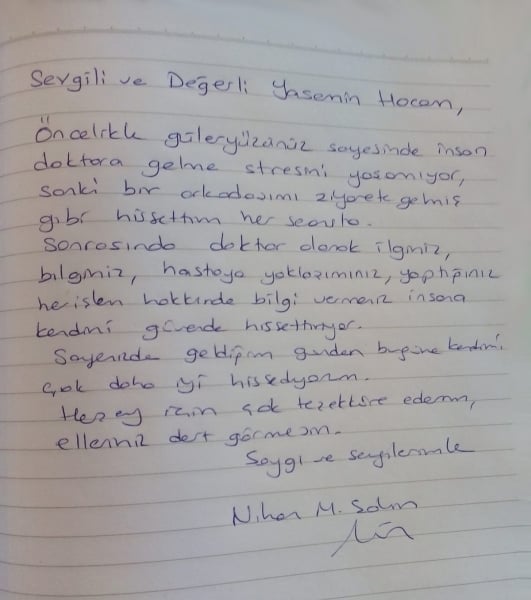 Sevgili ve Değerli Yasemin Hocam,
Öncelikle güleryüzünüz sayesinde insan
doktora gelme stresini yaşamıyor,
sanki bir arkadaşımı ziyarete gelmiş
gibi hissettim her seansta.
Sonrasında doktor olarak ilginiz,
bilginiz, hastaya yaklaşımınız, yaptığınız
her işlem hakkında bilgi vermeniz insana
kendini güvende hissettiriyor.
Sayenizde geldiğim günden bugüne kendimi
çok daha iyi hissediyorum.
Herşey için çok teşekküre ederim,
elleriniz dert görmesin.
Saygı ve sevgilerimle
Nihan M.